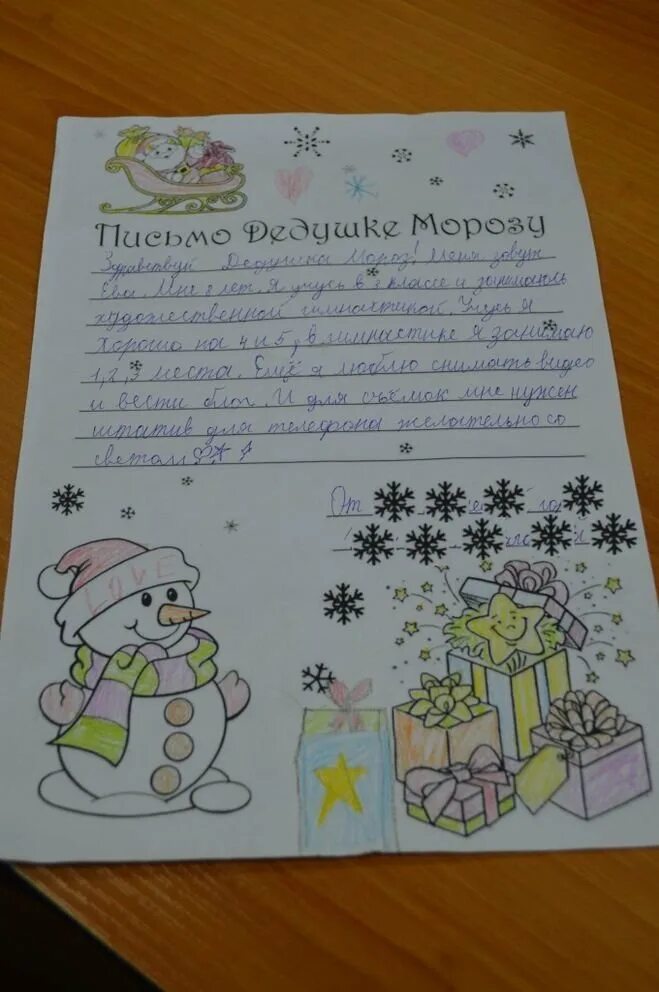 Письмо Дедушке Морозу
Здравствуй Дедушка Мороз! Меня зовут
Ева. Мне 8 лет. Я учусь в 2 классе и занимаюсь
художественной гимнастикой. Учусь я
хорошо на 4 и 5, в гимнастике я занимаю
1,2,3 места. Ещё я люблю снимать видео
и вести блог. И для съёмок мне нужен
штатив для телефона желательно со
светом
От
LOVE